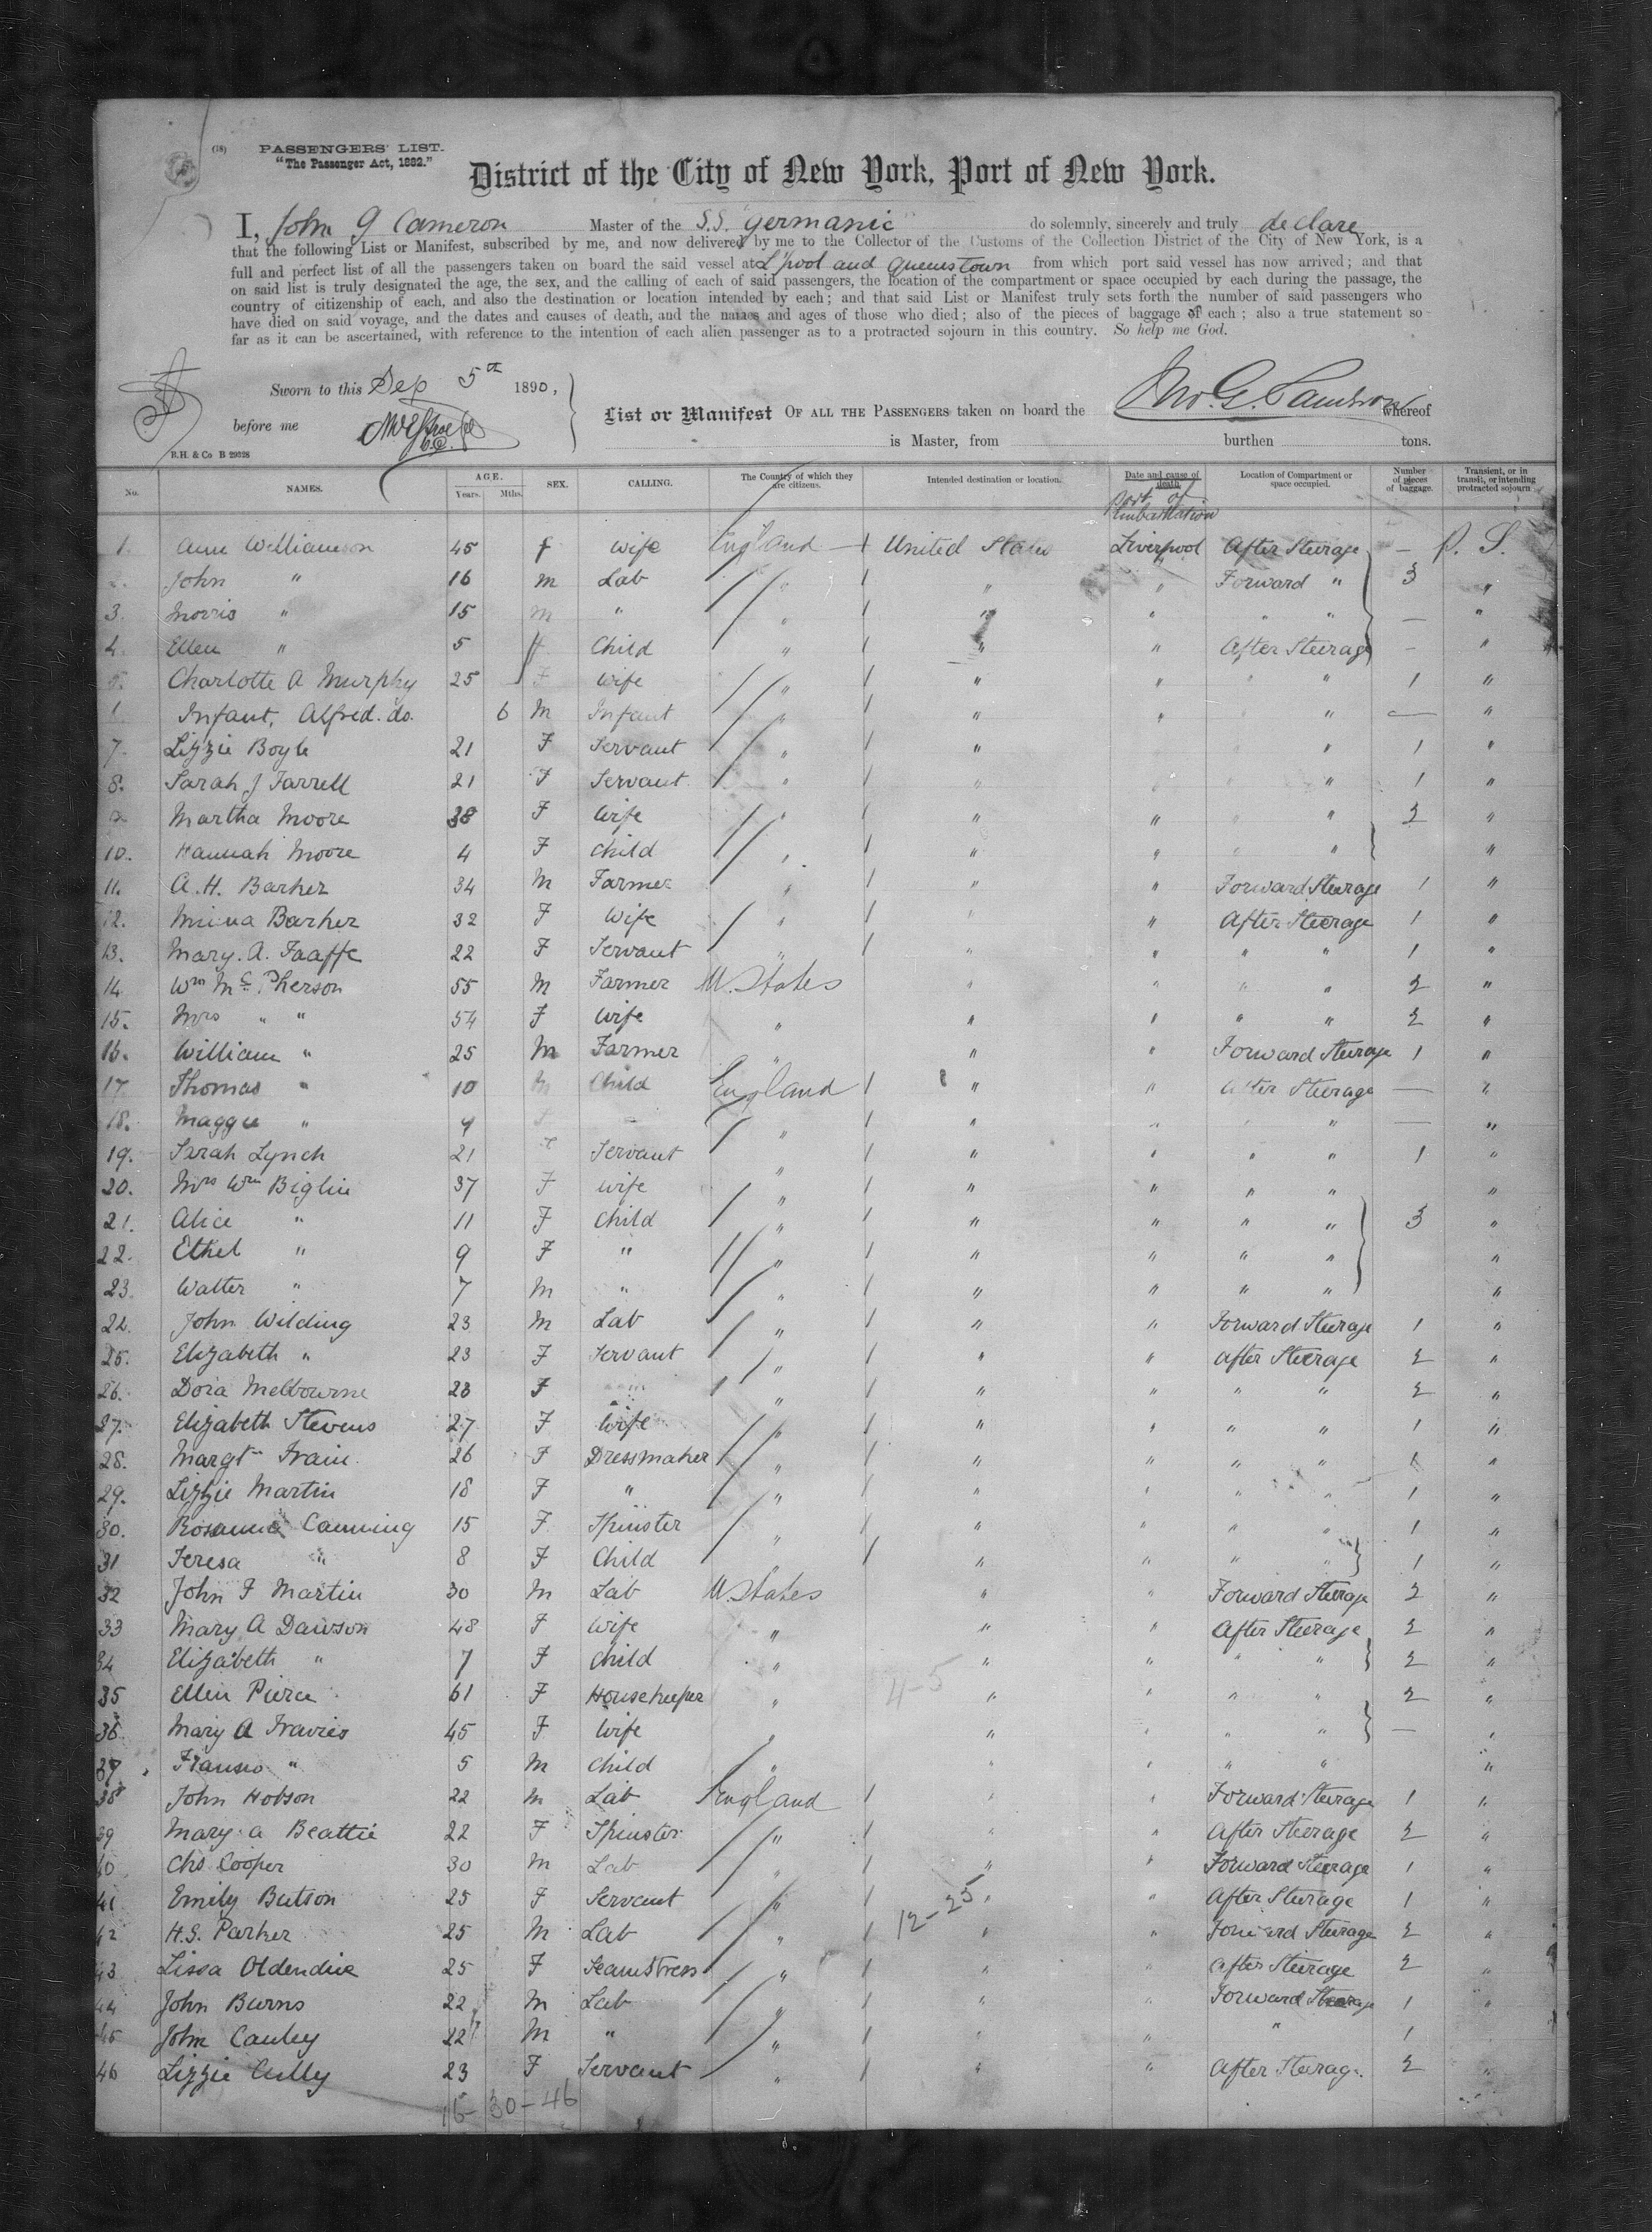 (18) PASSENGERS' LIST.
"The Passenger Act, 1882."
District of the City of New York, Port of New York.
I, John G Cameron Master of the S.S. "Germanic" do solemnly, sincerely and truly declare
that the following List or Manifest, subscribed by me, and now delivered by me to the Collector of the Customs of the Collection District of the City of New York, is a
full and perfect list of all the passengers taken on board the said vessel at L'pool and Queenstown from which port said vessel has now arrived; and that
on said list is truly designated the age, the sex, and the calling of each of said passengers, the location of the compartment or space occupied by each during the passage, the
country of citizenship of each, and also the destination or location intended by each; and that said List or Manifest truly sets forth the number of said passengers who
have died on said voyage, and the dates and causes of death, and the names and ages of those who died; also of the pieces of baggage of each; also a true statement so
far as it can be ascertained, with reference to the intention of each alien passenger as to a protracted sojourn in this country. So help me God.
Sworn to this Sep 5th 1890,
before me
R.H. & Co B 29328
List or Manifest OF ALL THE PASSENGERS taken on board the Jno. G. Cameron whereof
is Master, from burthen tons.
No. NAMES. AGE. Years. Mths. SEX. CALLING. The Country of which they are citizens. Intended destination or location. Date and cause of death. Location of Compartment or space occupied. Number of pieces of baggage. Transient, or in transit, or intending protracted sojourn
Port of Embarkation
1. Ann Williamson 45 f Wife England United States Liverpool After Steerage — P. S.
John " 16 m Lab " " " Forward " 3 "
3. Morris " 15 m " " " " " " — "
4. Ellen " 5 f Child " " " After Steerage — "
5. Charlotte A Murphy 25 F Wife " " " " " 1 "
Infant, Alfred. do. 6 M Infant " " " " — "
7. Lizzie Boyle 21 F Servant " " " 1 "
8. Sarah J Farrell 21 F Servant " " " 1 "
Martha Moore 38 F Wife " " " " " 2 "
10. Hannah Moore 4 F Child " " " " " "
11. A. H. Barker 34 M Farmer " " " Forward Steerage 1 "
12. Minna Barker 32 F Wife " " " After Steerage 1 "
13. Mary. A. Faaffe 22 F Servant " " " " " 1 "
14. Wm McPherson 55 M Farmer U. States " " " " 2 "
15. Mrs " " 54 F Wife " " " " " 2 "
16. William " 25 M Farmer " " " Forward Steerage 1 "
17. Thomas " 10 M Child England " " After Steerage — "
18. Maggie " 9 " " " " " — "
19. Sarah Lynch 21 F Servant " " " " " 1 "
20. Mrs Wm Biglin 37 F Wife " " " " " "
21. Alice " 11 F Child " " " " " 3 "
22. Ethel " 9 F " " " " " " "
23. Walter " 7 M " " " " " " "
24. John Wilding 23 M Lab " " " Forward Steerage 1 "
25. Elizabeth " 23 F Servant " " " After Steerage 2 "
26. Dora Melbourne 23 F " " " " " 2 "
27. Elizabeth Stevens 27 F Wife " " " " " 1 "
28. Margt Train 26 F Dressmaker " " " " " 1 "
29. Lizzie Martin 18 F " " " " " " 1 "
30. Rosanna Canning 15 F Spinster " " " " " 1 "
31 Teresa " 8 F Child " " " " " 1 "
32 John F Martin 30 M Lab U. States " " Forward Steerage 2 "
33 Mary A Dawson 48 F Wife " " " After Steerage 2 "
34 Elizabeth " 7 F Child " " " " " 2 "
35 Ellen Pierce 61 F Housekeeper " 4-5 " " " " 2 "
36 Mary A Travies 45 F Wife " " " " " — "
37 " 5 M Child " " " " " "
38 John Hobson 22 M Lab England " " Forward Steerage 1 "
39 Mary A Beattie 22 F Spinster " " " After Steerage 2 "
40 Chs Cooper 30 M Lab " " " Forward Steerage 1 "
41 Emily Butson 25 F Servant " 12-25 " " After Steerage 1 "
42 H.S. Parker 25 M Lab " " " Forward Steerage 2 "
43 Lissa 25 F Seamstress " " " After Steerage 2 "
44 John Burns 22 M Lab " " " Forward Steerage 1 "
45 John Cauley 22 M " " " " " 1 "
46 Lizzie Cully 23 F Servant " " " After Steerage 2 "
16-30-46